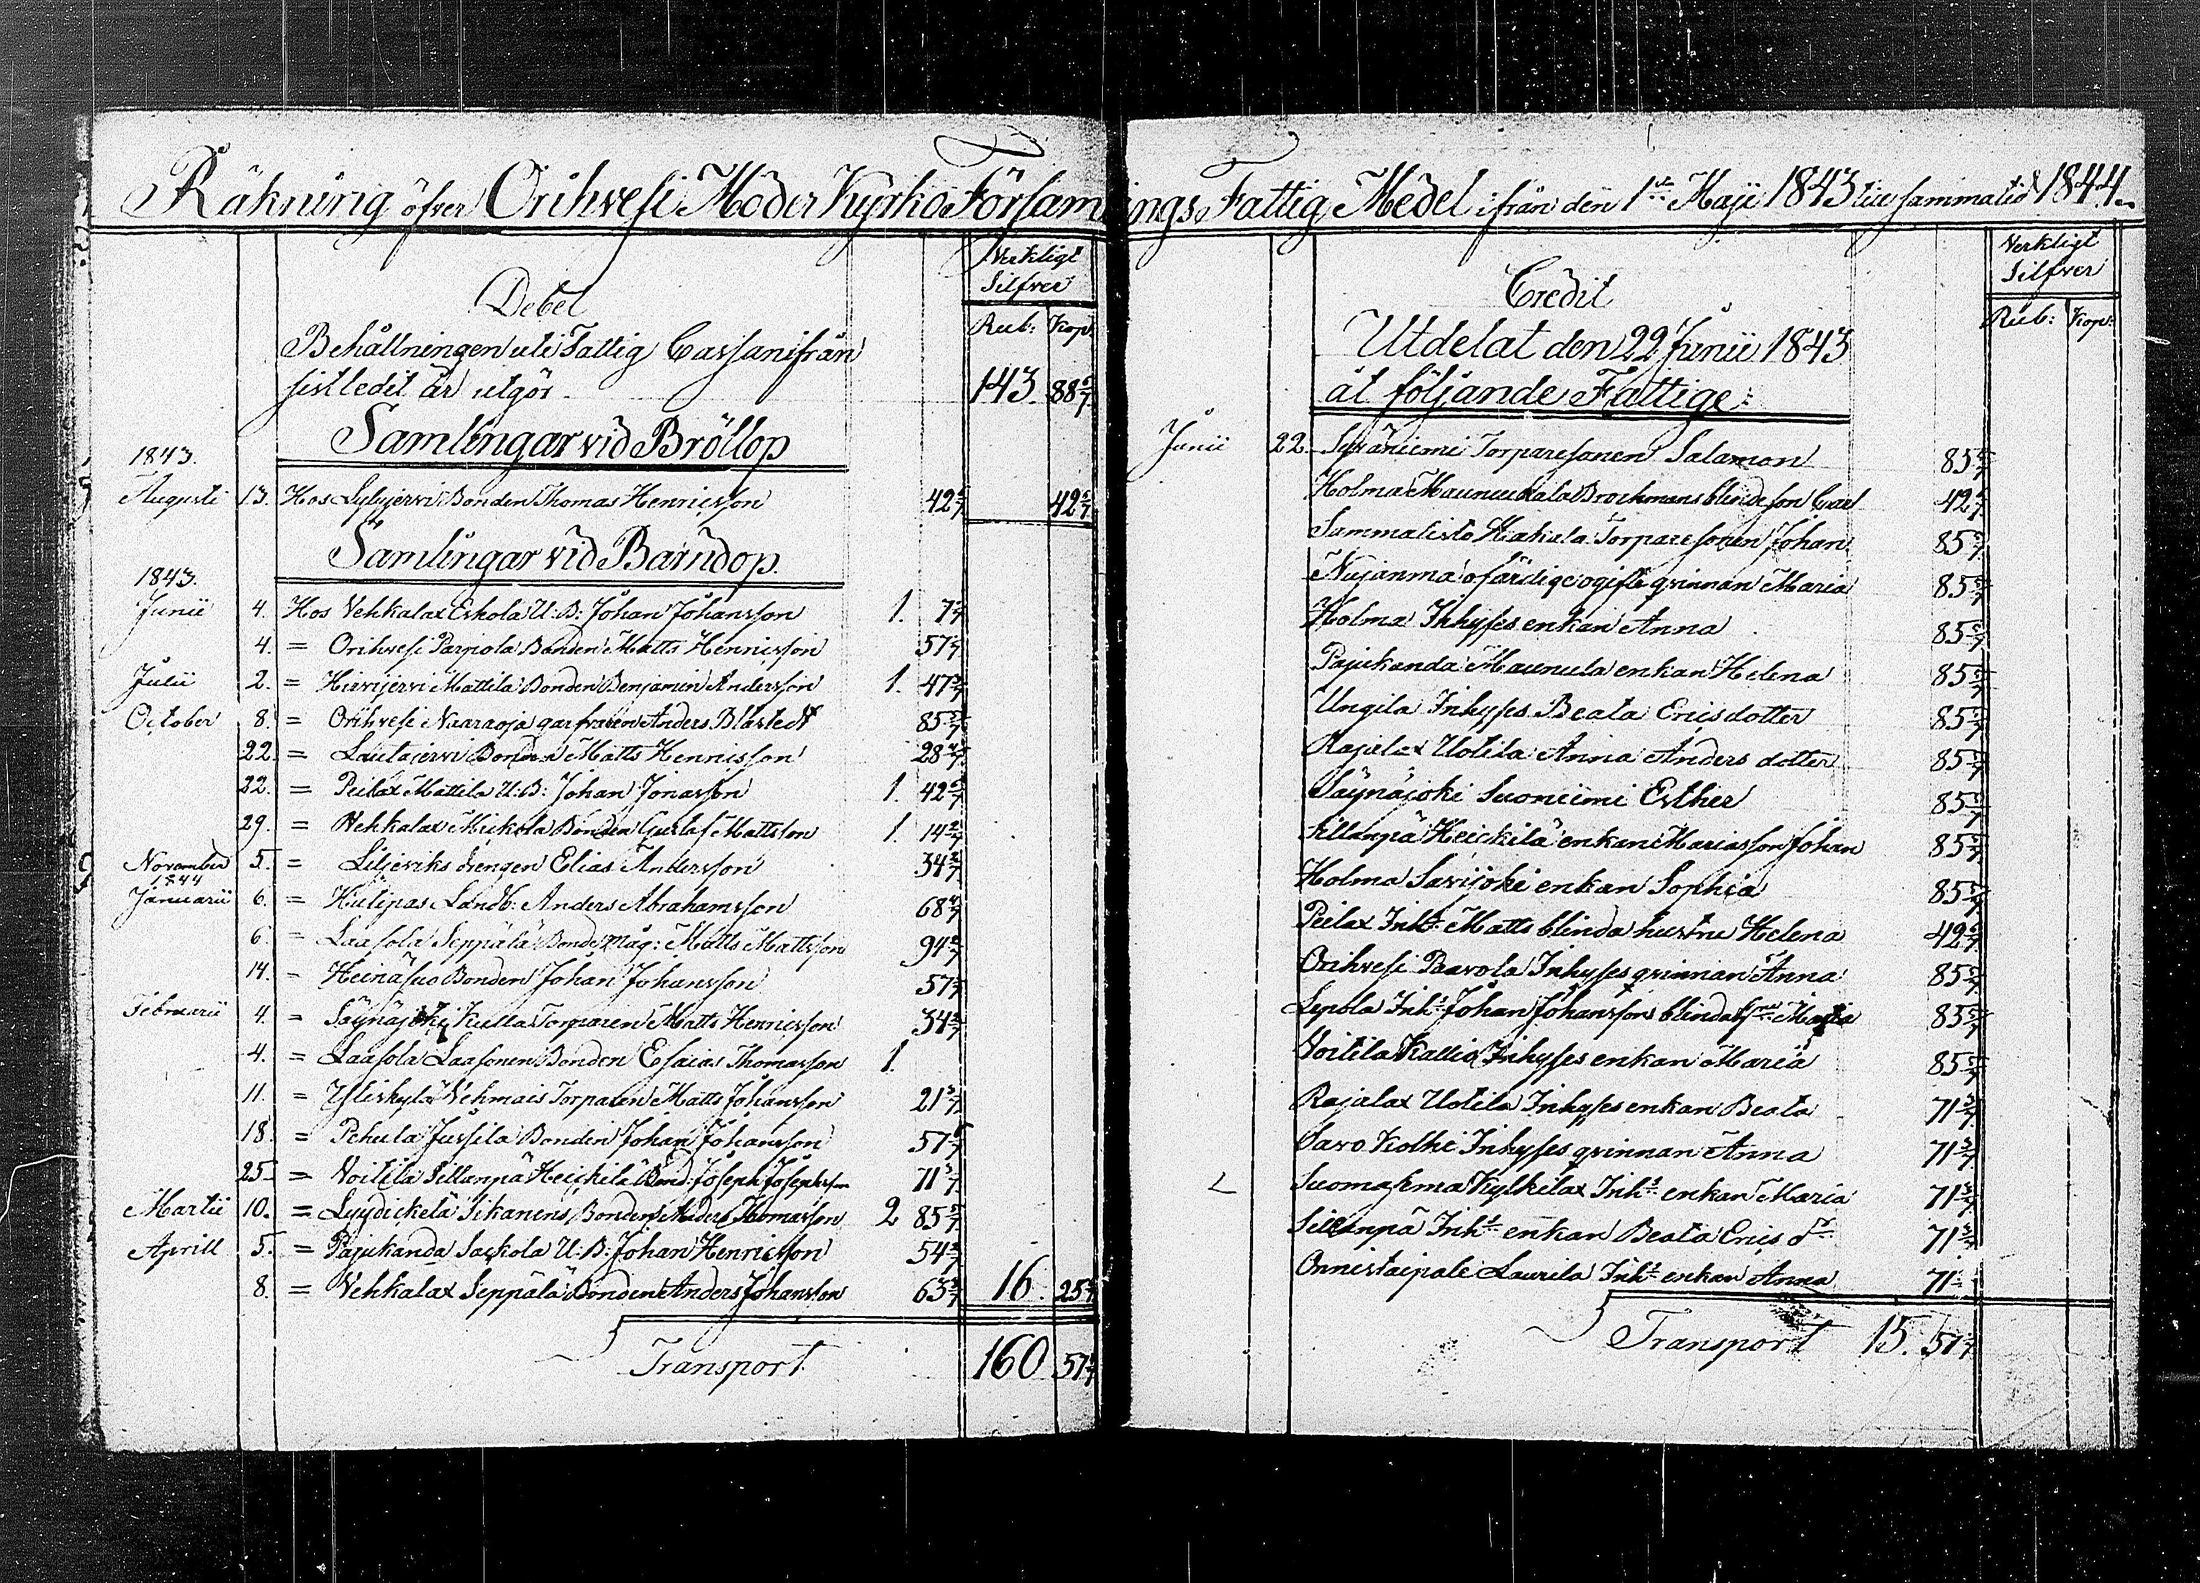 Räkning öfver Orihvesi Moder Kyrko Församlings Fattig Medel ifrån den 1sta Maji 1843 till samma tid 1844.
Verkligt
Silfver
Debet
Rub: Kop:
Behållningen uti Fattig Cassan ifrån
sistledit år utgör 143. 88 6/7
Samlingar vid Bröllop
1843.
Augusti 13. Hos Lyljervi Bonden Thomas Henricsson 42 6/7 42 6/7
Samlingar vid Barndop.
1843.
Junii 4. Hos Vehkalax Eskola U: B: Johan Johansson 1. 7 1/7
4. = Orihvesi Parpola Bonden Matts Henricsson 57 1/7
Julii 2. = Hirvijervi Mattila Bonden Benjamin Andersson 1. 47 3/7
October 8. = Orihvesi Naaraoja garfvaren Anders Blåstedt 85 5/7
22. = Lautajervi Bonden Matts Henricsson 28 4/7
22. = Peilax Mattila U: B: Johan Jonasson 1. 42 6/7
29. = Vehkalax Mickola Bonden Gustaf Mattsson 1. 14 2/7
November 5. = Liljeriks drengen Elias Andersson 34 2/7
1844
Januarii 6. = Hulipas Landb: Anders Abrahamsson 68 4/7
6. = Laasola Seppälä Bonde måg: Matts Mattsson 94 2/7
14. = Heinäsuo Bonden Johan Johansson 57 1/7
Februarii 4. = Säynäjoki Kulla Torparen Matts Henricsson 34 2/7
4. = Laasola Laasonen Bonden Esaias Thomasson 1.
11. = Yliskylä Vehmais Torparen Matts Johansson 21 3/7
18. = Pehula Jussila Bonden Johan Johansson 57 1/7
25. = Voitila Sillanpä Heickilä Bond: Joseph Josephsson 71 3/7
Martii 10. = Lyydickelä Sikanens Bonden Anders Thomasson 2 85 5/7
Aprill 5. = Pajukanda Sackola U: B: Johan Henricsson 54 2/7
8. = Vehkalax Seppälä Bonden Anders Johansson 63 3/7 16. 25 5/7
Transport 160 57 1/7
Verkligt
Silfver
Credit
Rub: Kop:
Utdelat den 22 Junii 1843
åt följande Fattige:
Junii 22. Syväniemi Torparesonen Salamon 85 5/7
Holma Maunuckala Brockmans blinde son Carl 42 6/7
Sammalisto Hakala Torparesonen Johan 85 5/7
Nujanma ofärdige ogifte qvinnan Maria 85 5/7
Holma Inhyses enkan Anna 85 5/7
Pajukanda Maunula enkan Helena 85 5/7
Ungila Inhyses Beata Ericsdotter 85 5/7
Rajalax Uotila Anna Anders dotter 85 5/7
Säynäjoki Suoniemi Esther 85 5/7
Sillanpä Heickilä enkan Marias son Johan 85 5/7
Holma Savijoki enkan Sophia 85 5/7
Peilax Inh:s Matts blinda hustru Helena 42 6/7
Orihvesi Paavola Inhyses qvinnan Anna 85 5/7
Lepola Inh:s Johan Johanssons blinda Maria 85 5/7
Voitila Kallio Inhyses enkan Maria 85 5/7
Rajalax Uotila Inhyses enkan Beata 71 3/7
Savo Kolhi Inhyses qvinnan Anna 71 3/7
Suomasema Kylkilax Inh:s enkan Maria 71 3/7
Sillanpä Inh:s enkan Beata Erics dr 71 3/7
Onnistaipale Laurila Inh:s enkan Anna 71
Transport 15. 57 1/7